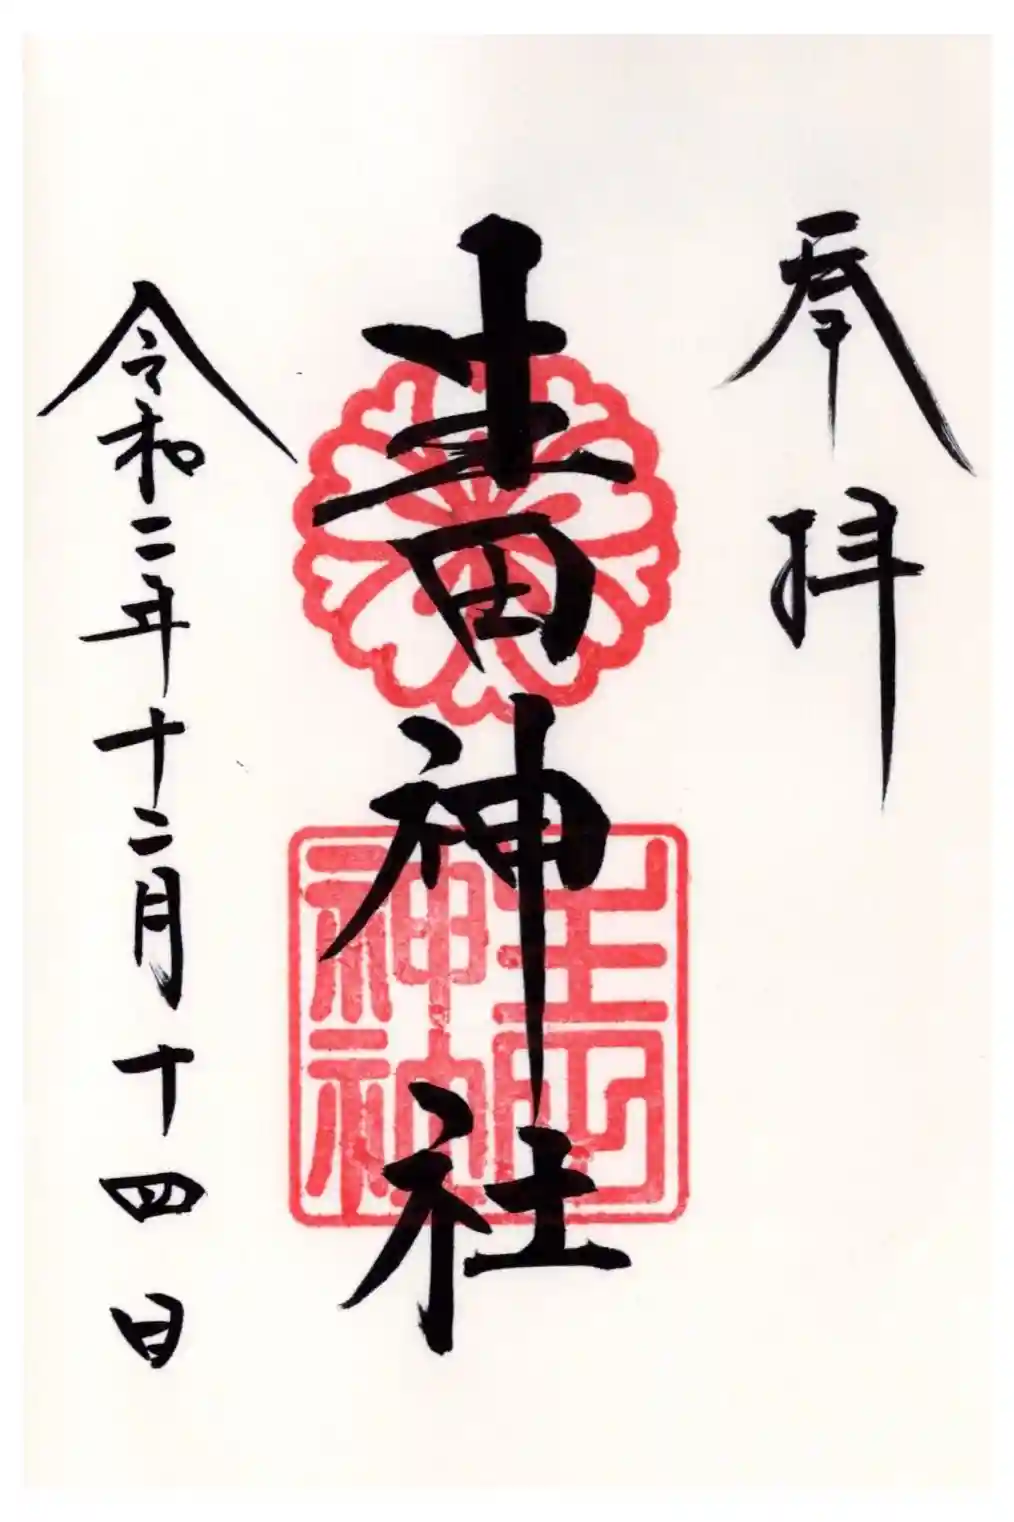 奉拝
生田神社
令和二年十二月十四日
生田
神社